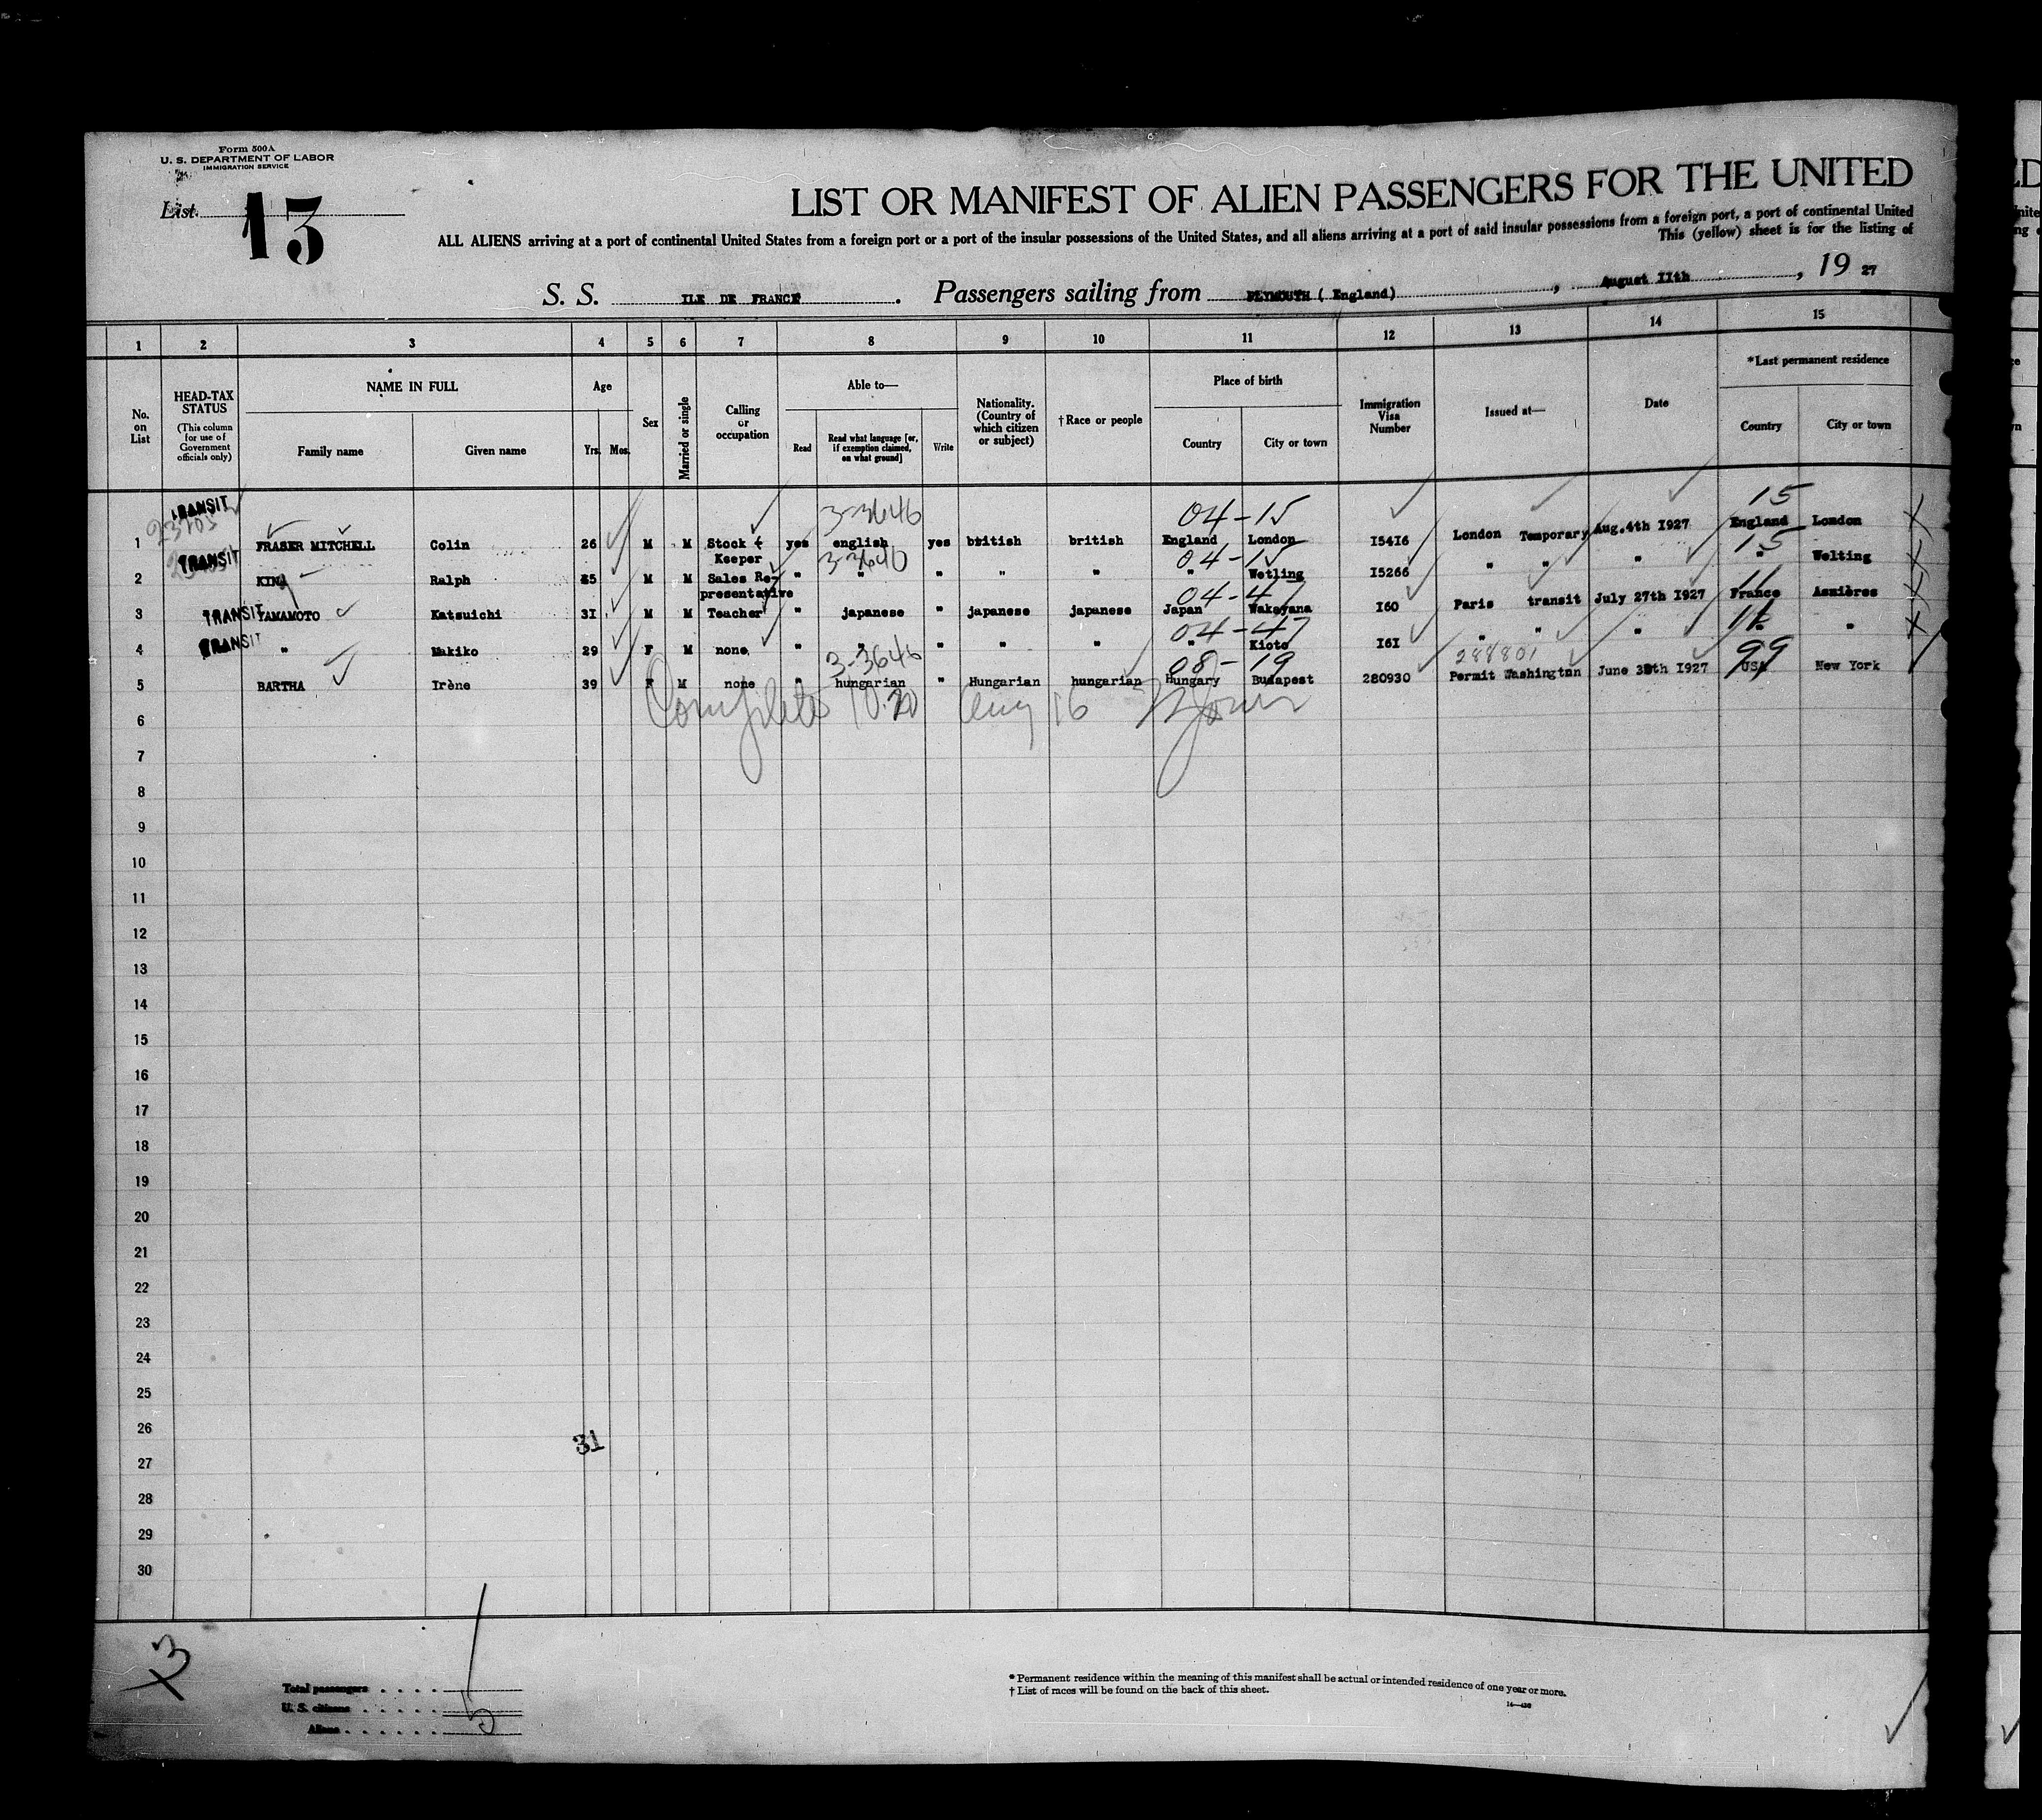 Form 500A
U. S. DEPARTMENT OF LABOR
IMMIGRATION SERVICE
List 13
LIST OR MANIFEST OF ALIEN PASSENGERS FOR THE UNITED
ALL ALIENS arriving at a port of continental United States from a foreign port or a port of the insular possessions of the United States, and all aliens arriving at a port of said insular possessions from a foreign port, a port of continental United
This (yellow) sheet is for the listing of
S. S. ILE DE FRANCE . Passengers sailing from PLYMOUTH ( England) , August IIth , 19 27
1 2 3 4 5 6 7 8 9 10 11 12 13 14 15
No. on List
HEAD-TAX STATUS (This column for use of Government officials only)
NAME IN FULL
Family name
Given name
Age
Yrs. Mos.
Sex
Married or single
Calling or occupation
Able to—
Read
Read what language [or, if exemption claimed, on what ground]
Write
Nationality. (Country of which citizen or subject)
†Race or people
Place of birth
Country
City or town
Immigration Visa Number
Issued at—
Date
*Last permanent residence
Country
City or town
TRANSIT 3-3646 04-15 15
1 FRASER MITCHELL Colin 26 M M Stock Keeper yes english yes british british England London I54I6 London Temporary Aug.4th I927 England London
TRANSIT 3-3640 04-15 15
2 Ralph M M Sales Representative " " " " " " Wetling I5266 " " " " Welting
TRANSIT 04-47 11
3 YAMAMOTO Katsuichi 3I M M Teacher " japanese " japanese japanese Japan Wakayana I60 Paris transit July 27th I927 France Asnières
TRANSIT 04-47 11
4 " Makiko 29 F M none " " " " " " Kioto I6I " " " "
3-3646 08-19 288801 99
5 BARTHA Irène 39 F M none " hungarian " Hungarian hungarian Hungary Budapest 280930 Permit Washington June 30th I927 USA New York
Complete 10.20 Aug 16
6
7
8
9
10
11
12
13
14
15
16
17
18
19
20
21
22
23
24
25
26
31
27
28
29
30
3
Total passengers . . . .
U. S. citizens . . . . .
Aliens . . . . . . 5
* Permanent residence within the meaning of this manifest shall be actual or intended residence of one year or more.
† List of races will be found on the back of this sheet.